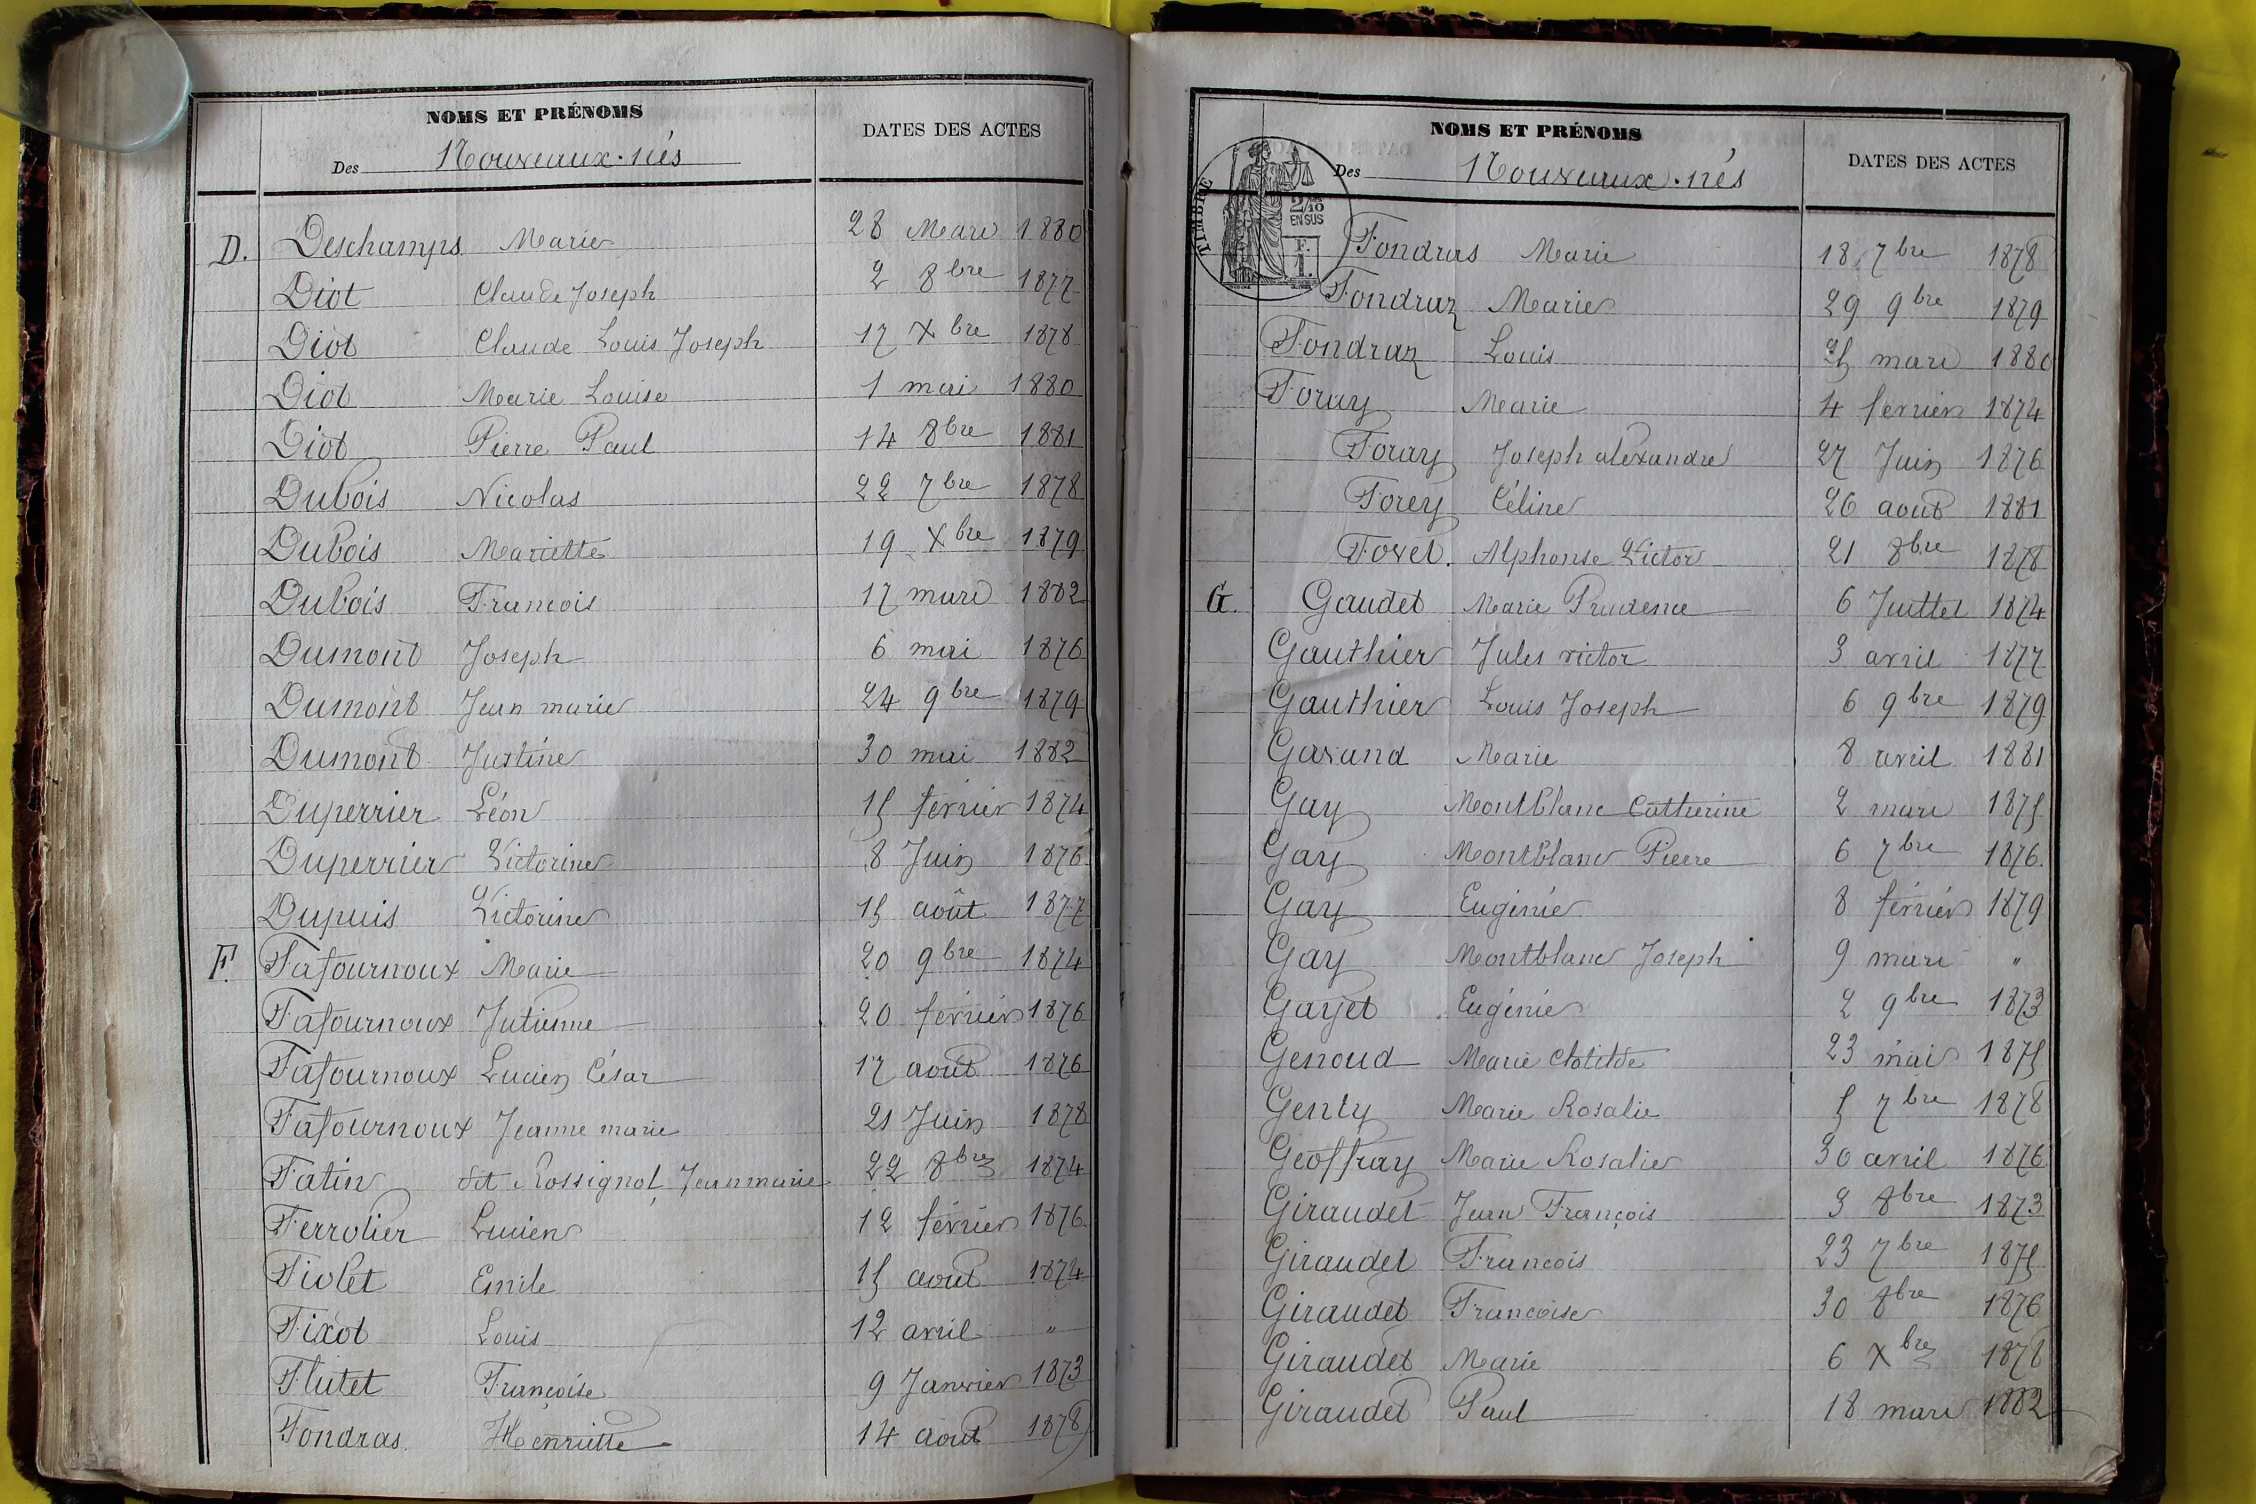 NOMS ET PRÉNOMS
DATES DES ACTES
Des Nouveaux-nés
D. Deschamps Marie 28 Mars 1880
Diot Claude Joseph 2 8bre 1877
Diot Claude Louis Joseph 17 Xbre 1878
Diot Marie Louise 1 mai 1880
Diot Pierre Paul 14 8bre 1881
Dubois Nicolas 22 7bre 1878
Dubois Mariette 19 Xbre 1879
Dubois Francois 17 mars 1882
Dumont Joseph 6 mai 1876
Dumont Jean marie 24 9bre 1879
Dumont Justine 30 mai 1882
Duperrier Léon 15 février 1874
Duperrier Victorine 8 Juin 1876
Dupuis Victorine 15 août 1877
F. Fafournoux Marie 20 9bre 1874
Fafournoux Julienne 20 février 1876
Fafournoux Lucien César 17 août 1876
Fafournoux Jeanne marie 21 Juin 1878
Fatin dit Rossignol, Jean marie 22 8bre 1874
Ferrolier Lucien 12 février 1876
Fiolet Emile 15 aout 1874
Fixot Louis 12 avril "
Flutet Françoise 9 Janvier 1873
Fondras Henriette 14 aout 1878
NOMS ET PRÉNOMS
DATES DES ACTES
Des Nouveaux-nés
TIMBRE
2/10
EN SUS
F.
1.
Fondras Marie 18 7bre 1878
Fondraz Marie 29 9bre 1879
Fondraz Louis 25 mars 1880
Foray Marie 4 février 1874
Foray Joseph alexandre 27 Juin 1876
Forey Céline 26 aout 1881
Fovet. Alphonse Victor 21 8bre 1878
G. Gaudet Marie Prudence 6 Juillet 1874
Gauthier Jules victor 3 avril 1877
Gauthier Louis Joseph 6 9bre 1879
Gavand Marie 8 avril 1881
Gay Montblanc Catherine 2 mars 1875
Gay Montblanc Pierre 6 7bre 1876.
Gay Eugénie 8 février 1879
Gay Montblanc Joseph 9 mars "
Gayet Eugénie 2 9bre 1873
Genoud Marie Clotilde 23 mai 1875
Genty Marie Rosalie 5 7bre 1878
Geoffray Marie Rosalie 30 avril 1876
Giraudet Jean François 3 8bre 1873
Giraudet Francois 23 7bre 1875
Giraudet Francoise 30 8bre 1876
Giraudet Marie 6 Xbre 1878
Giraudet Paul 18 mars 1882